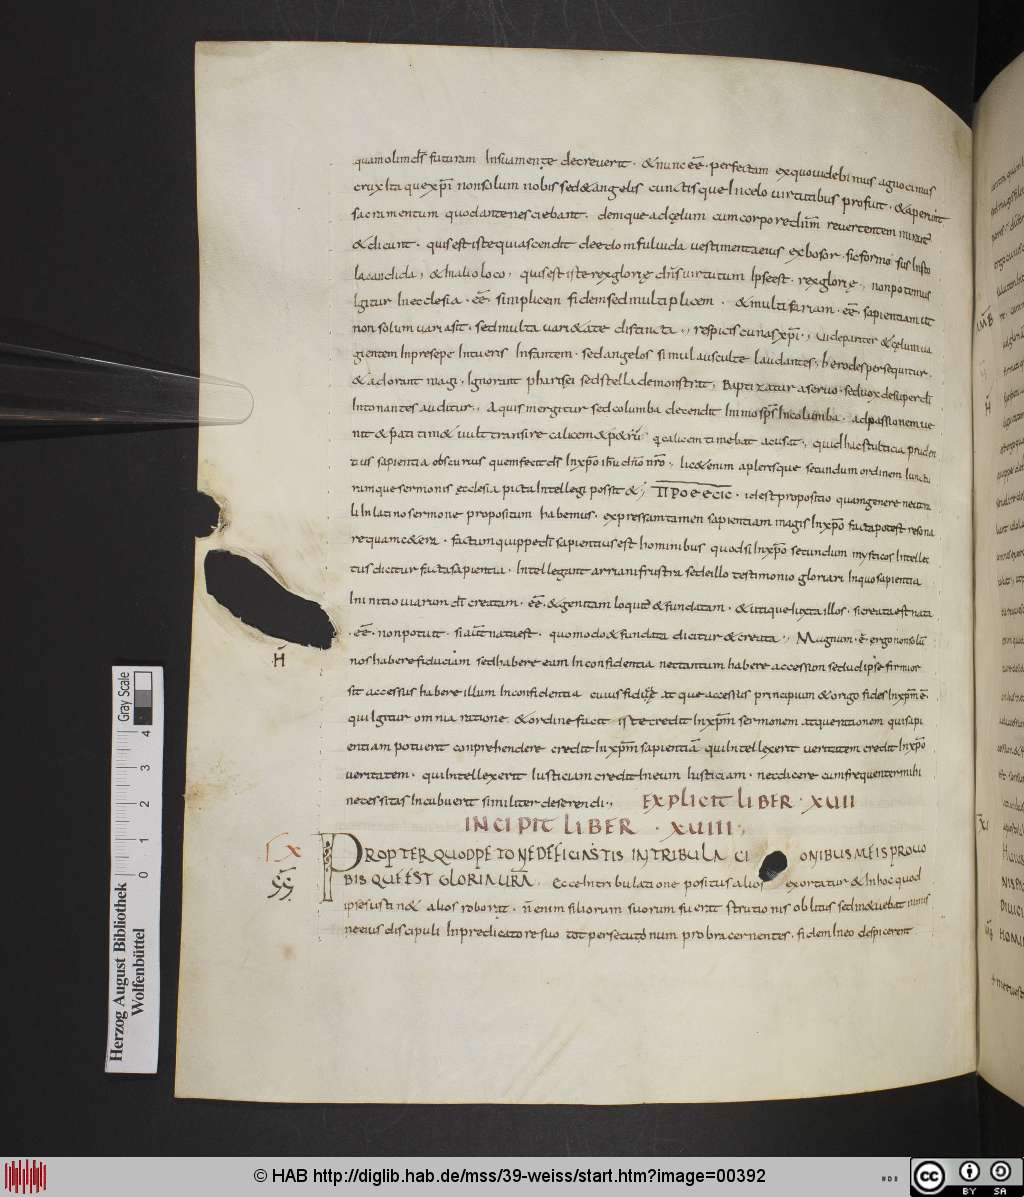 quamolim d̄s futuram Insuamente decreverit · & nunc eē · perfectam exquouidebimus agnoscimus
crux Ita que xp̄i nonsolum nobis sed & angelis cunctisque In celo uirtutibus profuit · & aperuit
sacramentum quod ante nesciebant · denique ad cęlum cum corpore dn̄m revertentem mirant̄
& dicunt · quis est iste qui ascendit de edom fuluida uestimenta eius ex bosor · sic formosus In sto
la candida , & In alio loco , quis est iste rex glorię dn̄s uirtutum Ipse est · rex glorię , non potemus
Igitur In ecclesia · eē simplicem fidem sed multiplicem · & multifariam · eē sapientiam ut
non solum uaria sit · sed multa uari & ate distincta ,, respicis cunas xp̄i ,, uide pariter & cęlum ua
gientem In presepe Intueris Infantem · sed angelos simul ausculte laudantes , herodes persequitur ·
& adorant magi , Ignorant pharisei sed stella demonstrat , Baptizatur a seruo · sed uox desuper d̄i
Intonantes auditur ,, Aquis mergitur sed columba decendit Immo sp̄s In columba · ad passionem ue
nit & pati tim & uult transire calicem & petrū q calicem timebat acusat , quid hac stultitia pruden
tius sapientia obscurius quem fecit d̄s In xp̄o ih̄u dn̄o nr̄o · lic & enim aplerisque secundum ordinem lunctu
ramque sermonis ecclesia picta Intellegi possit & , ΠΡΟΘΕCΙC · id est propositio quam genere neutra
li In latino sermone propositum habemus · expressam tamen sapientiam magis In xp̄o facta potest resona
re quam c&era · factum quippe d̄i sapientius est hominibus quod si In xp̄o secundum mysticos Intellec
tus dicitur facta sapientia · Intellegant arriani frustra se de illo testimonio gloriari In quo sapientia
In initio uiarum d̄i creatam · eē · & genitam loquit̄ & fundatam · & utique Iuxta illos · si creata est nata
· eē · non potuit · si aut̄ nata est · quomodo & fundata dicitur & creata ,, Magnum · ē · ergo non solū
nos habere fiduciam sed habere eam In confidentia nec tantum habere accession sed uel ipse firmior
sit accessus habere illum In confidentia cuius fidię atque accessus principium & origo fides In xp̄m ē
qui Igitur omnia ratione & ordine facit iste credit In xp̄m sermonem atque rationem qui sapi
entiam potuerit conprehendere credit In xp̄m sapientiā qui Intellexerit ueritatem credit In xp̄o
ueritatem · qui Intellexerit Iusticiam credit In eum Iusticiam · nec dicere cum frequenter mihi
necessitas Incubuerit similiter deserendi ,, EXPLICIT LIBER · XUII
H̄
INCIPIT LIBER · XUIII ,
IX
PROPTER QUOD PETO NE DEFICIATIS IN TRIBULACI ONIBUS MEIS PRO UO
BIS QUE EST GLORIA UR̄A · Ecce In tribulatione positus alios exortatur & In hoc quod
ipse sustin& alios roborat · n̄ enim filiorum suorum fuerat strutionis oblitus sed m&uebat nimis
ne eius discipuli In predicatore suo tot persecutonum probra cernentes · fidem In eo despicerent
Gray Scale
0 1 2 3 4
Herzog August Bibliothek
Wolfenbüttel
© HAB http://diglib.hab.de/mss/39-weiss/start.htm?image=00392
cc BY SA